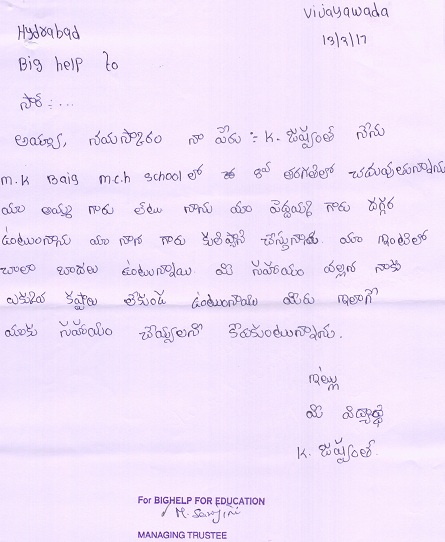 Vijayawada
Hydrabad
13/3/17
Big help to
సార్ :- ...
అయ్యా, నమస్కారం నా పేరు :- K. జష్వంత్ నేను
m.K Baig m.c.h school లో 8వ తరగతిలో చదువుతున్నాను
మా అమ్మ గారు లేటు నాను మా పెద్దమ్మ గారు దగ్గర
ఉంటుంనాను మా నాన గారు కులిపని చేస్తునారు. మా ఇంటిలో
చాలా బాదలు ఉంటున్నాయి. మి సహాయం వల్లన నాకు
ఎటువంటి కష్టాలు లేకుండ ఉంటునాయి మీరు ఇలాగే
మాకు సహాయం చేయ్యాలని కోరుకుంటున్నాను.
ఇట్లు
మీ విద్యార్థి
K. జష్వంత్.
For BIGHELP FOR EDUCATION
MANAGING TRUSTEE